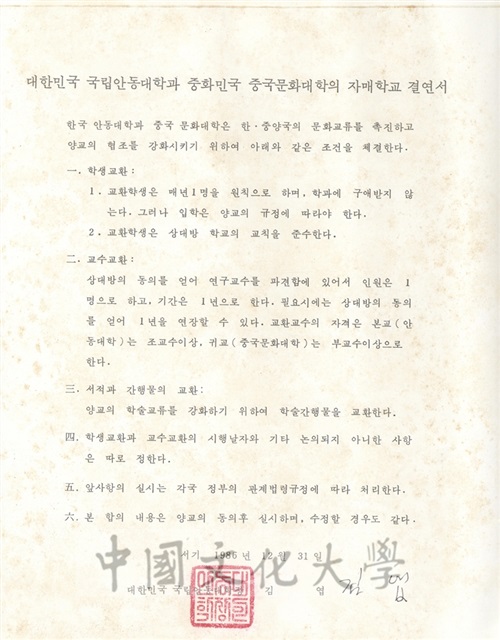 대한민국 국립안동대학과 중화민국 중국문화대학의 자매학교 결연서
한국 안동대학과 중국 문화대학은 한·중양국의 문화교류를 촉진하고
양교의 협조를 강화시키기 위하여 아래와 같은 조건을 체결한다.
一. 학생교환:
1. 교환학생은 매년 1명을 원칙으로 하며, 학과에 구애받지 않
는다. 그러나 입학은 양교의 규정에 따라야 한다.
2. 교환학생은 상대방 학교의 교칙을 준수한다.
二. 교수교환:
상대방의 동의를 얻어 연구교수를 파견함에 있어서 인원은 1
명으로 하고, 기간은 1년으로 한다. 필요시에는 상대방의 동의
를 얻어 1년을 연장할 수 있다. 교환교수의 자격은 본교(안
동대학)는 조교수이상, 귀교(중국문화대학)는 부교수이상으로
한다.
三. 서적과 간행물의 교환:
양교의 학술교류를 강화하기 위하여 학술간행물을 교환한다.
四. 학생교환과 교수교환의 시행날자와 기타 논의되지 아니한 사항
은 따로 정한다.
五. 앞사항의 실시는 각국 정부의 관계법령규정에 따라 처리한다.
六. 본 합의 내용은 양교의 동의후 실시하며, 수정할 경우도 같다.
서기 1986년 12월 31일
中國文化大學
대한민국 국립안동대학 김 엽